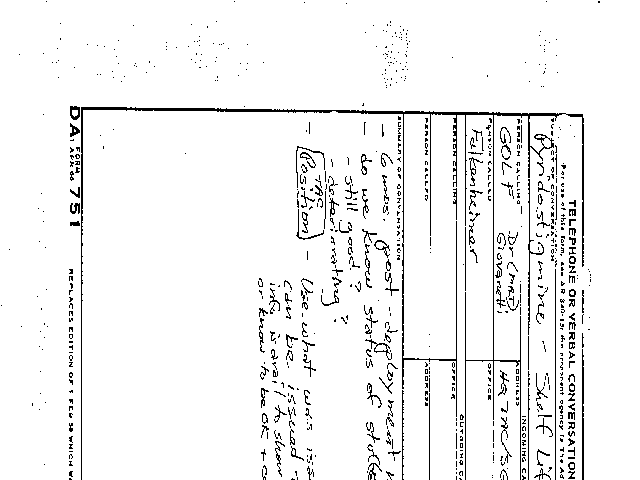 TELEPHONE OR VERBAL CONVERSATION
For use of this form, see AR 340-15; the proponent agency is The Ad
SUBJECT OF CONVERSATION
Pyridostigmine - Shelf Lif
INCOMING CA
PERSON CALLING
ADDRESS
GOLF Dr (MRI) Giovanetti
HQ TAC/SG
PERSON CALLED
OFFICE
Falkenheimer
OUTGOING CA
PERSON CALLING
OFFICE
PERSON CALLED
ADDRESS
SUMMARY OF CONVERSATION
- 6 mos. post-deployment
- do we know status of stuff
- still good?
- deteriorating?
- TAC Position - Use what was iss
can be issued
info is avail to show
or know to be OK +
DA FORM 751
APR 66
REPLACES EDITION OF 1 FEB 58 WHICH W